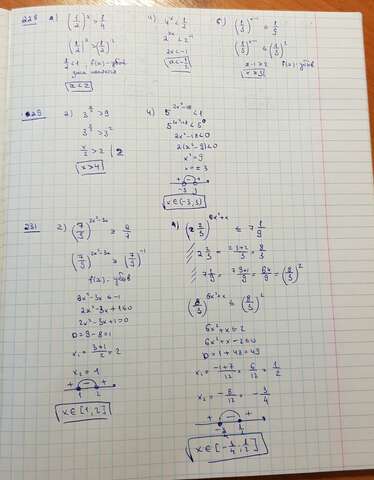 228 2) (1/2)^x > 1/4
(1/2)^x > (1/2)^2
1/2 < 1, f(x) - убыв
знак меняется
x < 2
4) 4^x < 1/2
2^2x < 2^-1
2x < -1
x < -1/2
6) (1/3)^x-1 ≤ 1/9
(1/3)^x-1 ≤ (1/3)^2
x-1 ≥ 2 f(x) - убыв
x ≥ 3
229 2) 3^x/2 > 9
3^x/2 > 3^2
x/2 > 2 | 2
x > 4
4) 5^2x²-18 < 1
5^2x²-18 < 5^0
2x²-18 < 0
2(x²-9) < 0
x² = 9
x = ± 3
+ - +
-3 3
x ∈ (-3, 3)
231 2) (7/9)^2x²-3x ≥ 9/7
(7/9)^2x²-3x ≥ (7/9)^-1
f(x) - убыв
2x²-3x ≤ -1
2x²-3x+1 ≤ 0
2x²-3x+1=0
D = 9-8=1
x₁ = 3+1/2 = 2
x₂ = 1
+ - +
1 2
x ∈ [1, 2]
4) (2 2/3)^6x²+x ≤ 7 1/9
2 2/3 = 2·3+2/3 = 8/3
7 1/9 = 7·9+1/9 = 64/9 = (8/3)^2
(8/3)^6x²+x ≤ (8/3)^2
6x²+x ≤ 2
6x²+x-2 ≤ 0
D = 1+48 = 49
x₁ = -1+7/12 = 6/12 = 1/2
x₂ = -8/12 = -3/4
+ - +
x ∈ [-3/4, 1/2]